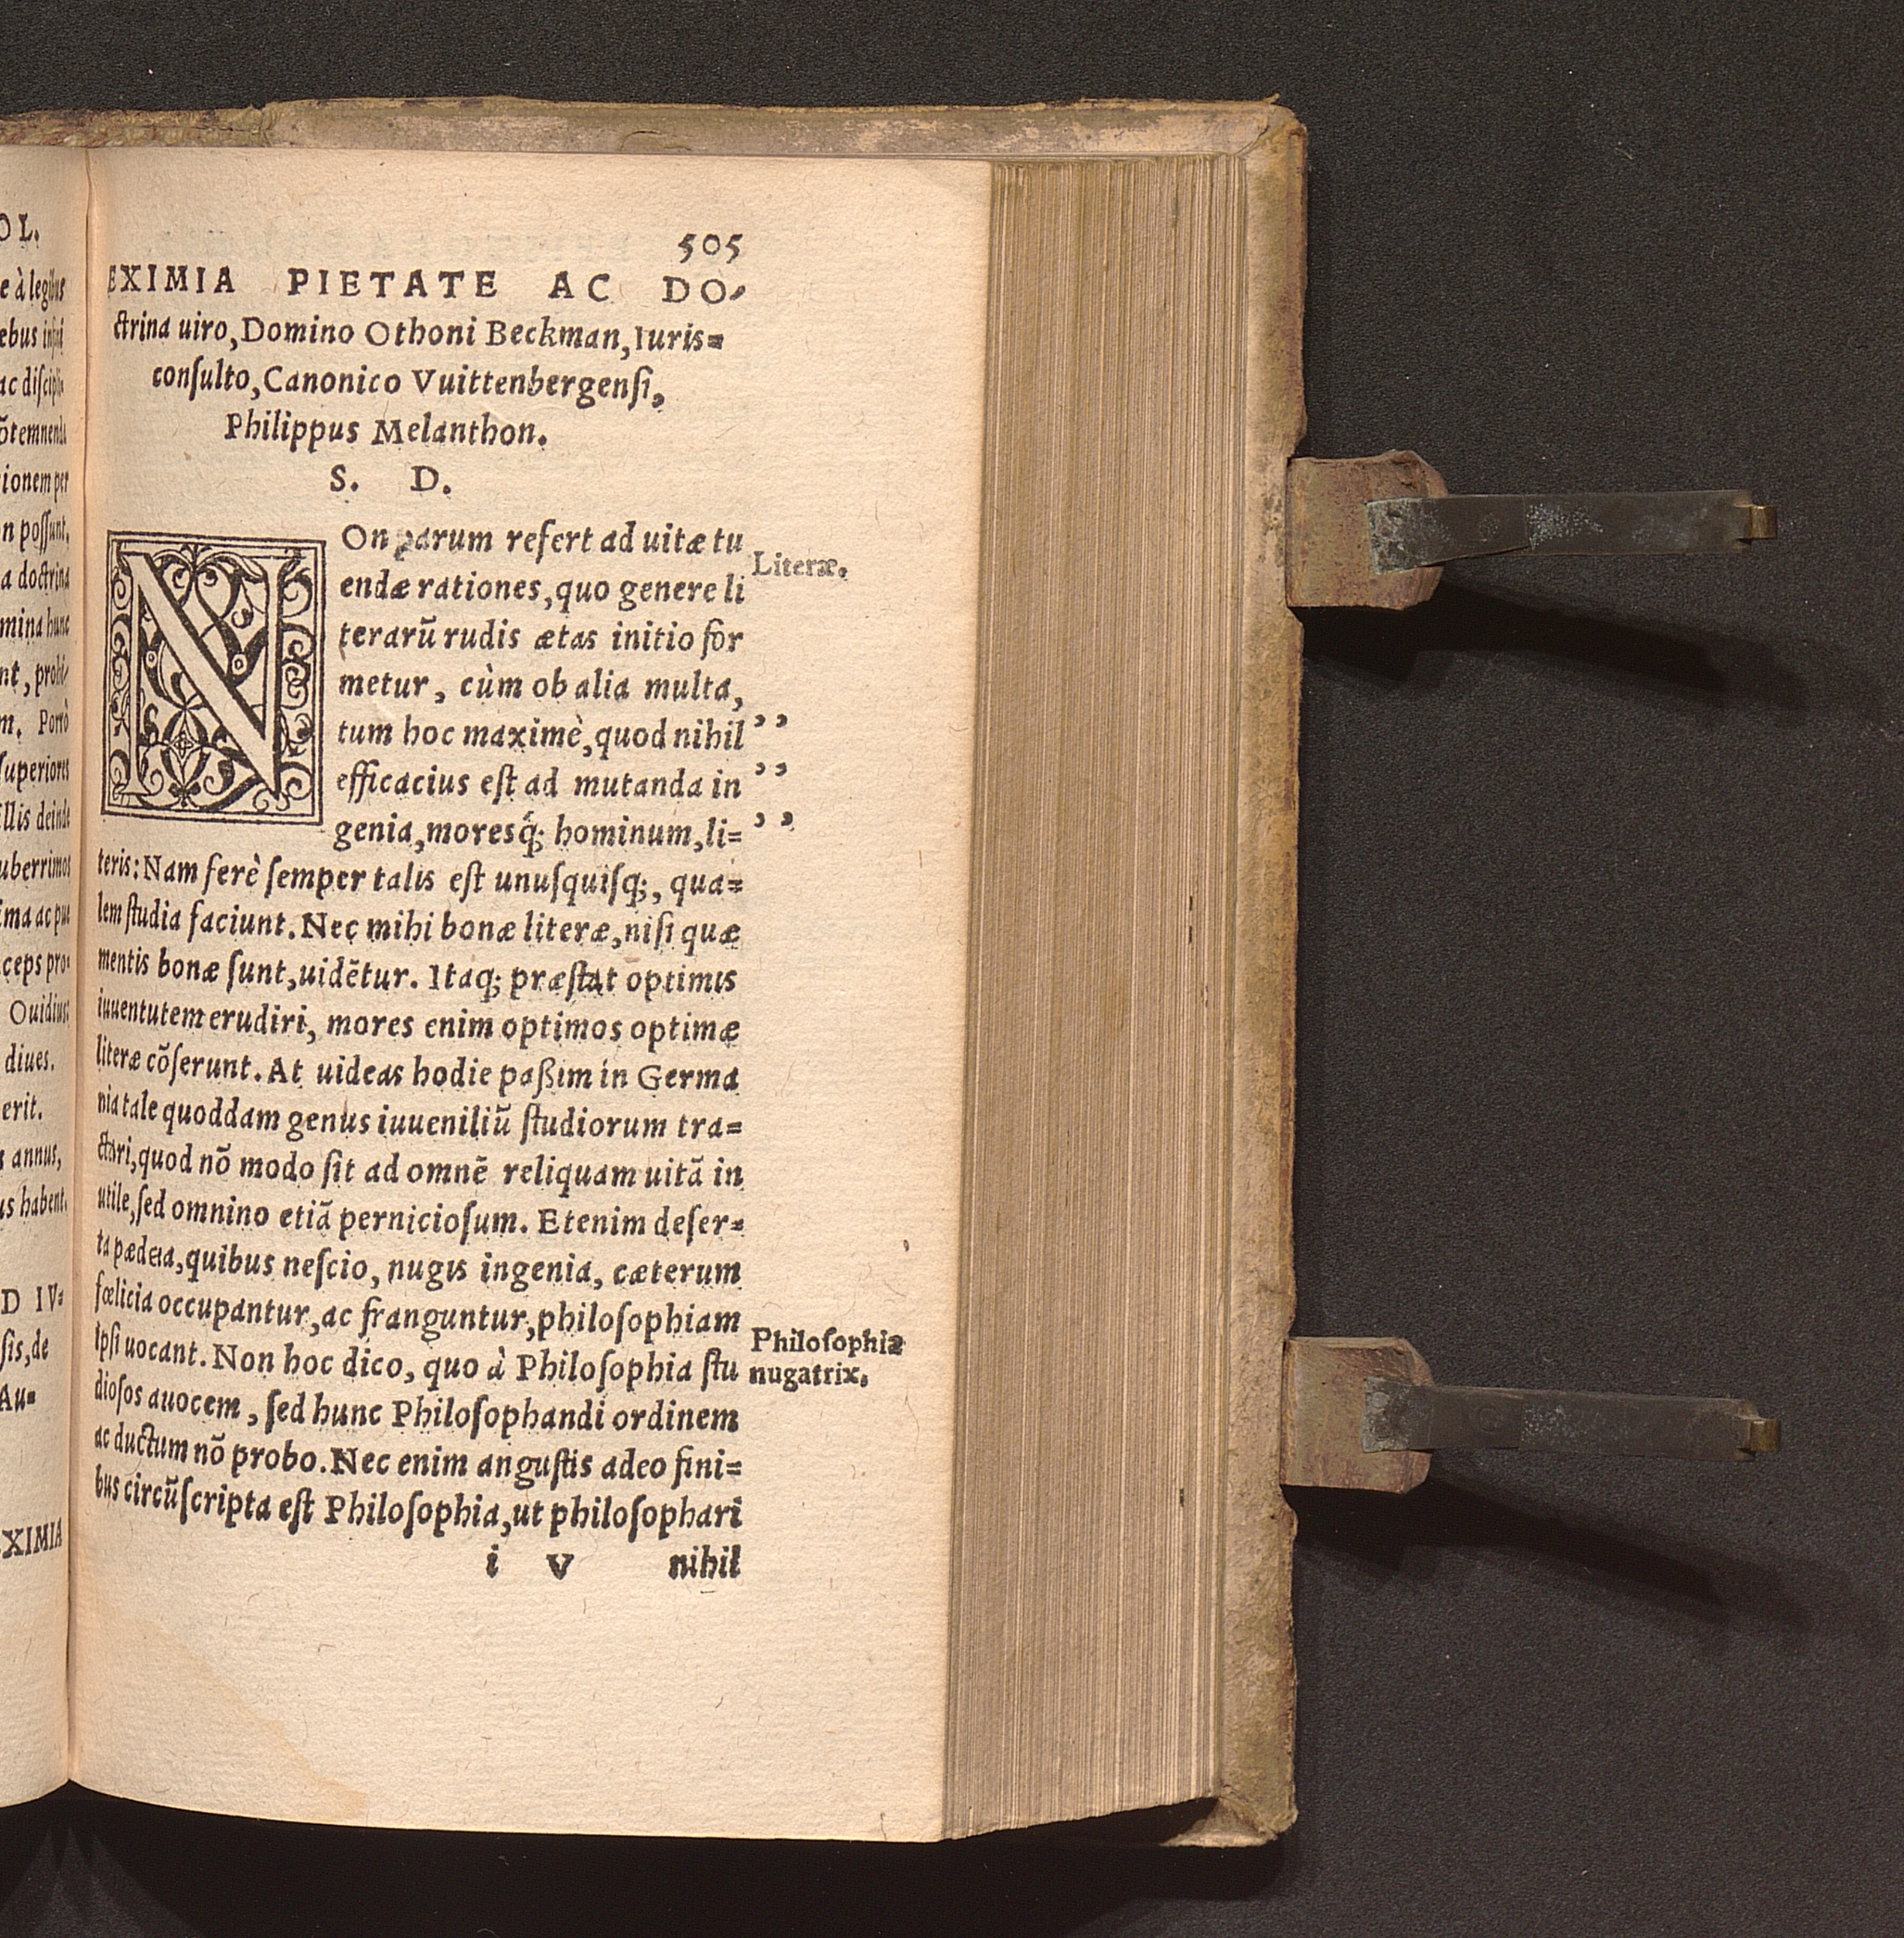 OL.
e à legibus
ebus insti
ac discipli
õtemnenda
ionem per
n possunt,
a doctrina
mina hunc
nt, prohi-
m. Porrò
superiores
illis deinde
uberrimos
ima ac pu
ceps pro-
Ouidius:
diues.
erit.
s annus,
us habent.
D IV-
sis, de
Au-
EXIMIA
505
EXIMIA PIETATE AC DO-
ctrina uiro, Domino Othoni Beckman, Iuris-
consulto, Canonico Vuittenbergensi,
Philippus Melanthon.
S. D.
NOn parum refert ad uitæ tu
endæ rationes, quo genere li
terarũ rudis ætas initio for
metur, cùm ob alia multa,
tum hoc maximè, quod nihil ,,
efficacius est ad mutanda in ,,
genia, moresq́; hominum, li- ,,
teris: Nam ferè semper talis est unusquisq;, qua-
lem studia faciunt. Nec mihi bonæ literæ, nisi quæ
mentis bonæ sunt, uidẽtur. Itaq; præstat optimis
iuuentutem erudiri, mores enim optimos optimæ
literæ cõserunt. At uideas hodie paßim in Germa
nia tale quoddam genus iuueniliũ studiorum tra-
ctari, quod nõ modo sit ad omnẽ reliquam uitã in
utile, sed omnino etiã perniciosum. Etenim deser-
ta pædeia, quibus nescio, nugis ingenia, cæterum
fœlicia occupantur, ac franguntur, philosophiam
ipsi uocant. Non hoc dico, quo à Philosophia stu
diosos auocem, sed hunc Philosophandi ordinem
ac ductum nõ probo. Nec enim angustis adeo fini-
bus circũscripta est Philosophia, ut philosophari
i v nihil
Literæ.
Philosophia
nugatrix.